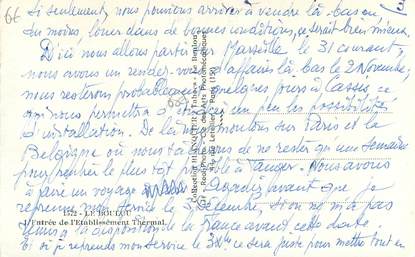 si seulement nous pouvions arriver à vendre là bas ou
du moins, louer dans de bonnes conditions, ce serait bien mieux.
D'ici nous allons partir pour Marseille le 31 courant,
nous avons un rendez-vous d'affaires là bas le 2 Novembre,
nous resterons probablement quelques jours à Cassis, ce
qui nous permettra d'étudier un peu les possibilités
d'installation. De là nous montons sur Paris et la
Belgique où nous tâcherons de ne rester qu'une semaine
pour rentrer le plus tôt possible à Tanger. Nous avons
à faire un voyage à Agadir avant que je
reprenne mon service le 3 Décembre, si on ne m'a pas
remis à la disposition de la France avant cette date.
Et si je reprends mon service le 3 Xbre ce sera juste pour mettre tout en
1522 - LE BOULOU
L'Entrée de l'Etablissement Thermal.